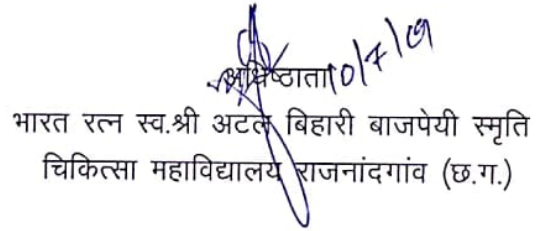 अधिष्ठाता 10/7/19
भारत रत्न स्व.श्री अटल बिहारी बाजपेयी स्मृति
चिकित्सा महाविद्यालय राजनांदगांव (छ.ग.)